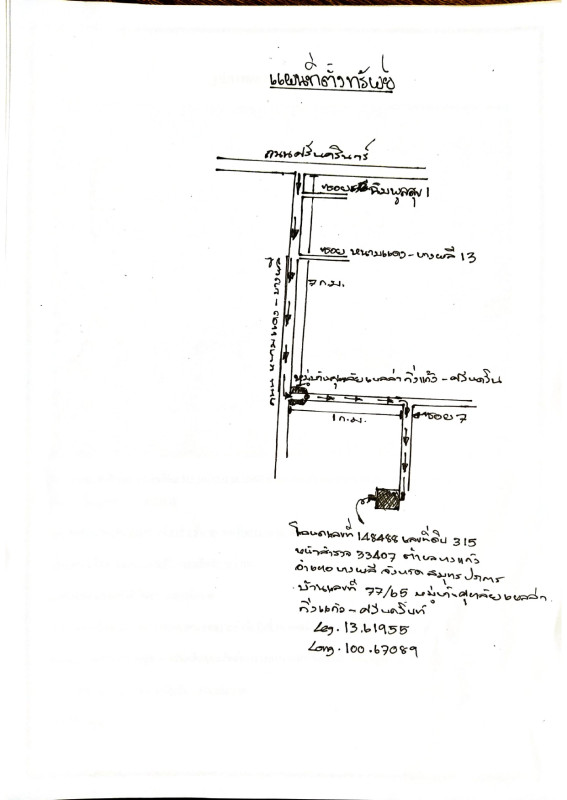 แผนที่ตั้งทรัพย์
ถนนศรีนครินทร์
ซอย ฉิมพูลสุข 1
ซอย หนามแดง - บางพลี 13
7 ก.ม.
ถนน หนามแดง - บางพลี
หมู่บ้านศุภาลัย เบลล่า กิ่งแก้ว - ศรีนครินทร์
ซอย 7
1 ก.ม.
โฉนดเลขที่ 148488 เลขที่ดิน 315
หน้าสำรวจ 33407 ตำบลบางแก้ว
อำเภอ บางพลี จังหวัด สมุทรปราการ
บ้านเลขที่ 77/65 หมู่บ้านศุภาลัย เบลล่า
กิ่งแก้ว - ศรีนครินทร์
Leg. 13.61955
Long. 100.67089